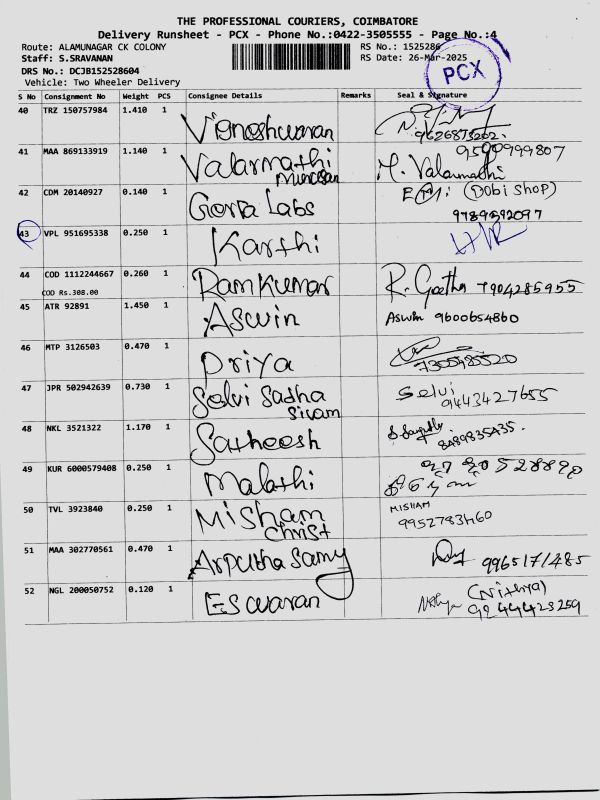 THE PROFESSIONAL COURIERS, COIMBATORE
Delivery Runsheet - PCX - Phone No.:0422-3505555 - Page No.:4
Route: ALAMUNAGAR CK COLONY
RS No.: 1525286
Staff: S.SRAVANAN
RS Date: 26-Mar-2025
DRS No.: DCJB152528604
Vehicle: Two Wheeler Delivery
PCX
S No Consignment No Weight PCS Consignee Details Remarks Seal & Signature
40 TRZ 150757984 1.410 1 Vigneshwaran
41 MAA 869133919 1.140 1 Valarmathi Murugesan 9590999807 M. Valarmathi
42 CDM 20140927 0.140 1 Gorta Labs (Dobi Shop) 9789592097
43 VPL 951695338 0.250 1 Karthi
44 COD 1112244667 0.260 1 Ramkumar R. Geetha 7904285955
COD Rs.308.00
45 ATR 92891 1.450 1 Aswin Aswin 9600654860
46 MTP 3126503 0.470 1 Priya 7305485520
47 JPR 502942639 0.730 1 Selvi Sadha Sivam Selvi 9443427655
48 NKL 3521322 1.170 1 Satheesh 8489835435.
49 KUR 6000579408 0.250 1 Malathi
50 TVL 3923840 0.250 1 Misham Christ MISHAM 9952783460
51 MAA 302770561 0.470 1 Arputha Samy 9965171485
52 NGL 200050752 0.120 1 Eswaran (Nithya) 9244423259